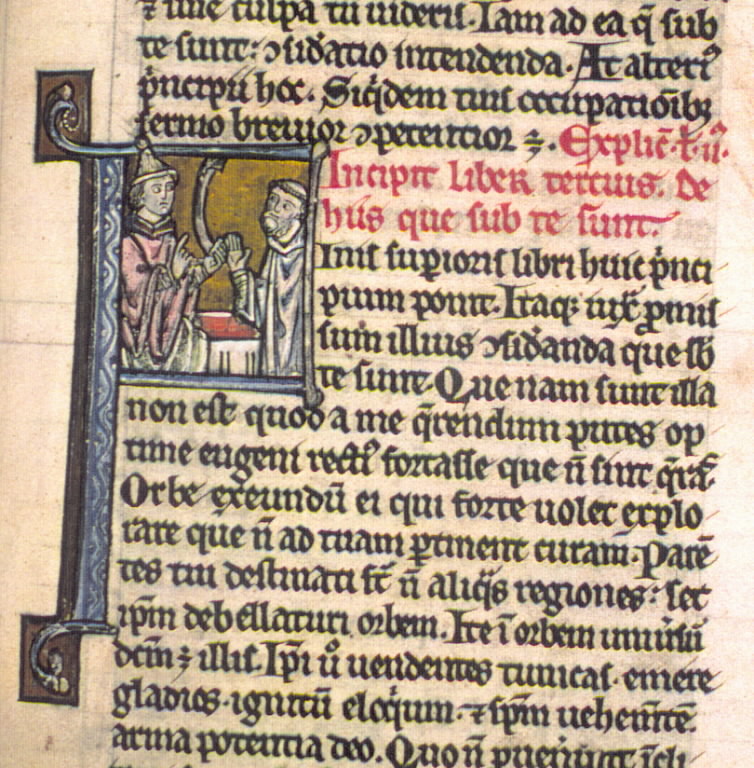 ⁊ tine culpa tu uideris. Iam ad ea q̄ sub
te sunt: ↄsid̾atio intendenda. At alteri᷒
p̾ncipii hoc. Siq̾dem tuis occupationib;
sermo breuior ↄpetentior ē. Explic̄. l̄. ii᷒.
Incipit liber tertius. de
hiis que sub te sunt.
Finis superioris libri huic p̾nci
pium ponit. Itaq; iux̄ ꝓmis
sum illius ↄsid̾anda que sb̄
te sunt. Que nam sunt illa
non est quod a me q̄rendum putes op
time eugeni rect᷒ fortasse que n̄ sint q̄rā.
Orbe exeundū ei qui forte uolet explo
rare que n̄ ad tuam ꝑtinent curam. Parē
tes tui destinati st̄ n̄ aliq̾s regiones: set
ip̄m debellaturi orbem. Ite ī orbem uniūsū
dc̄m ē illis. Ip̄i u̾ uendentes tunicas emere
gladios. ignitū eloq̾um. ⁊ sp̄m uehem̄te.
arma potentia deo. Quo n̄